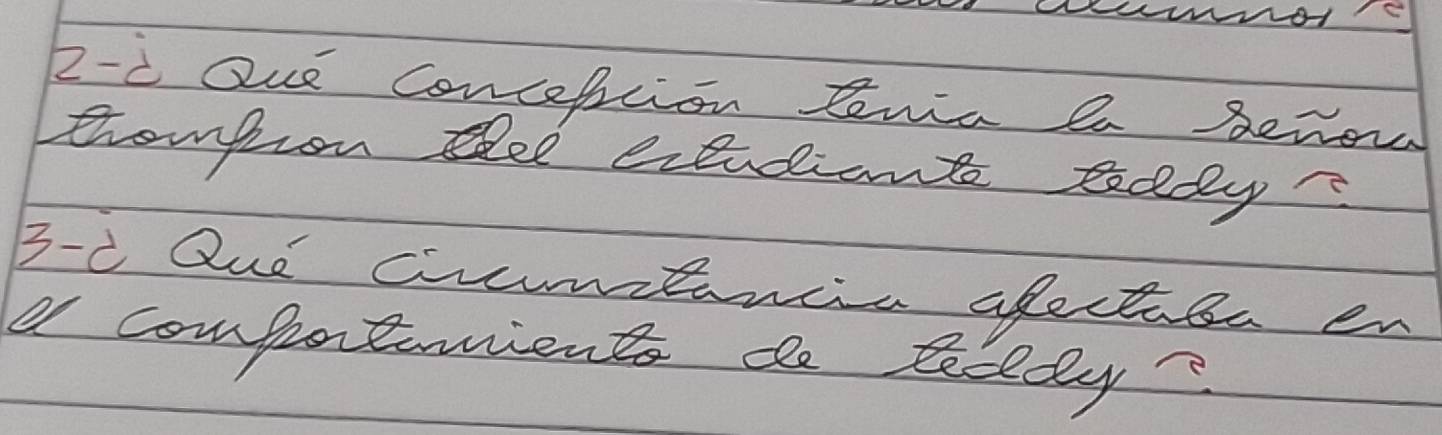 alumnos?
2-¿ Qué concepción tenia la señora
thompson del estudiante teddy?
3-¿ Qué circunstancia afectaba en
el comportamiento de teddy?